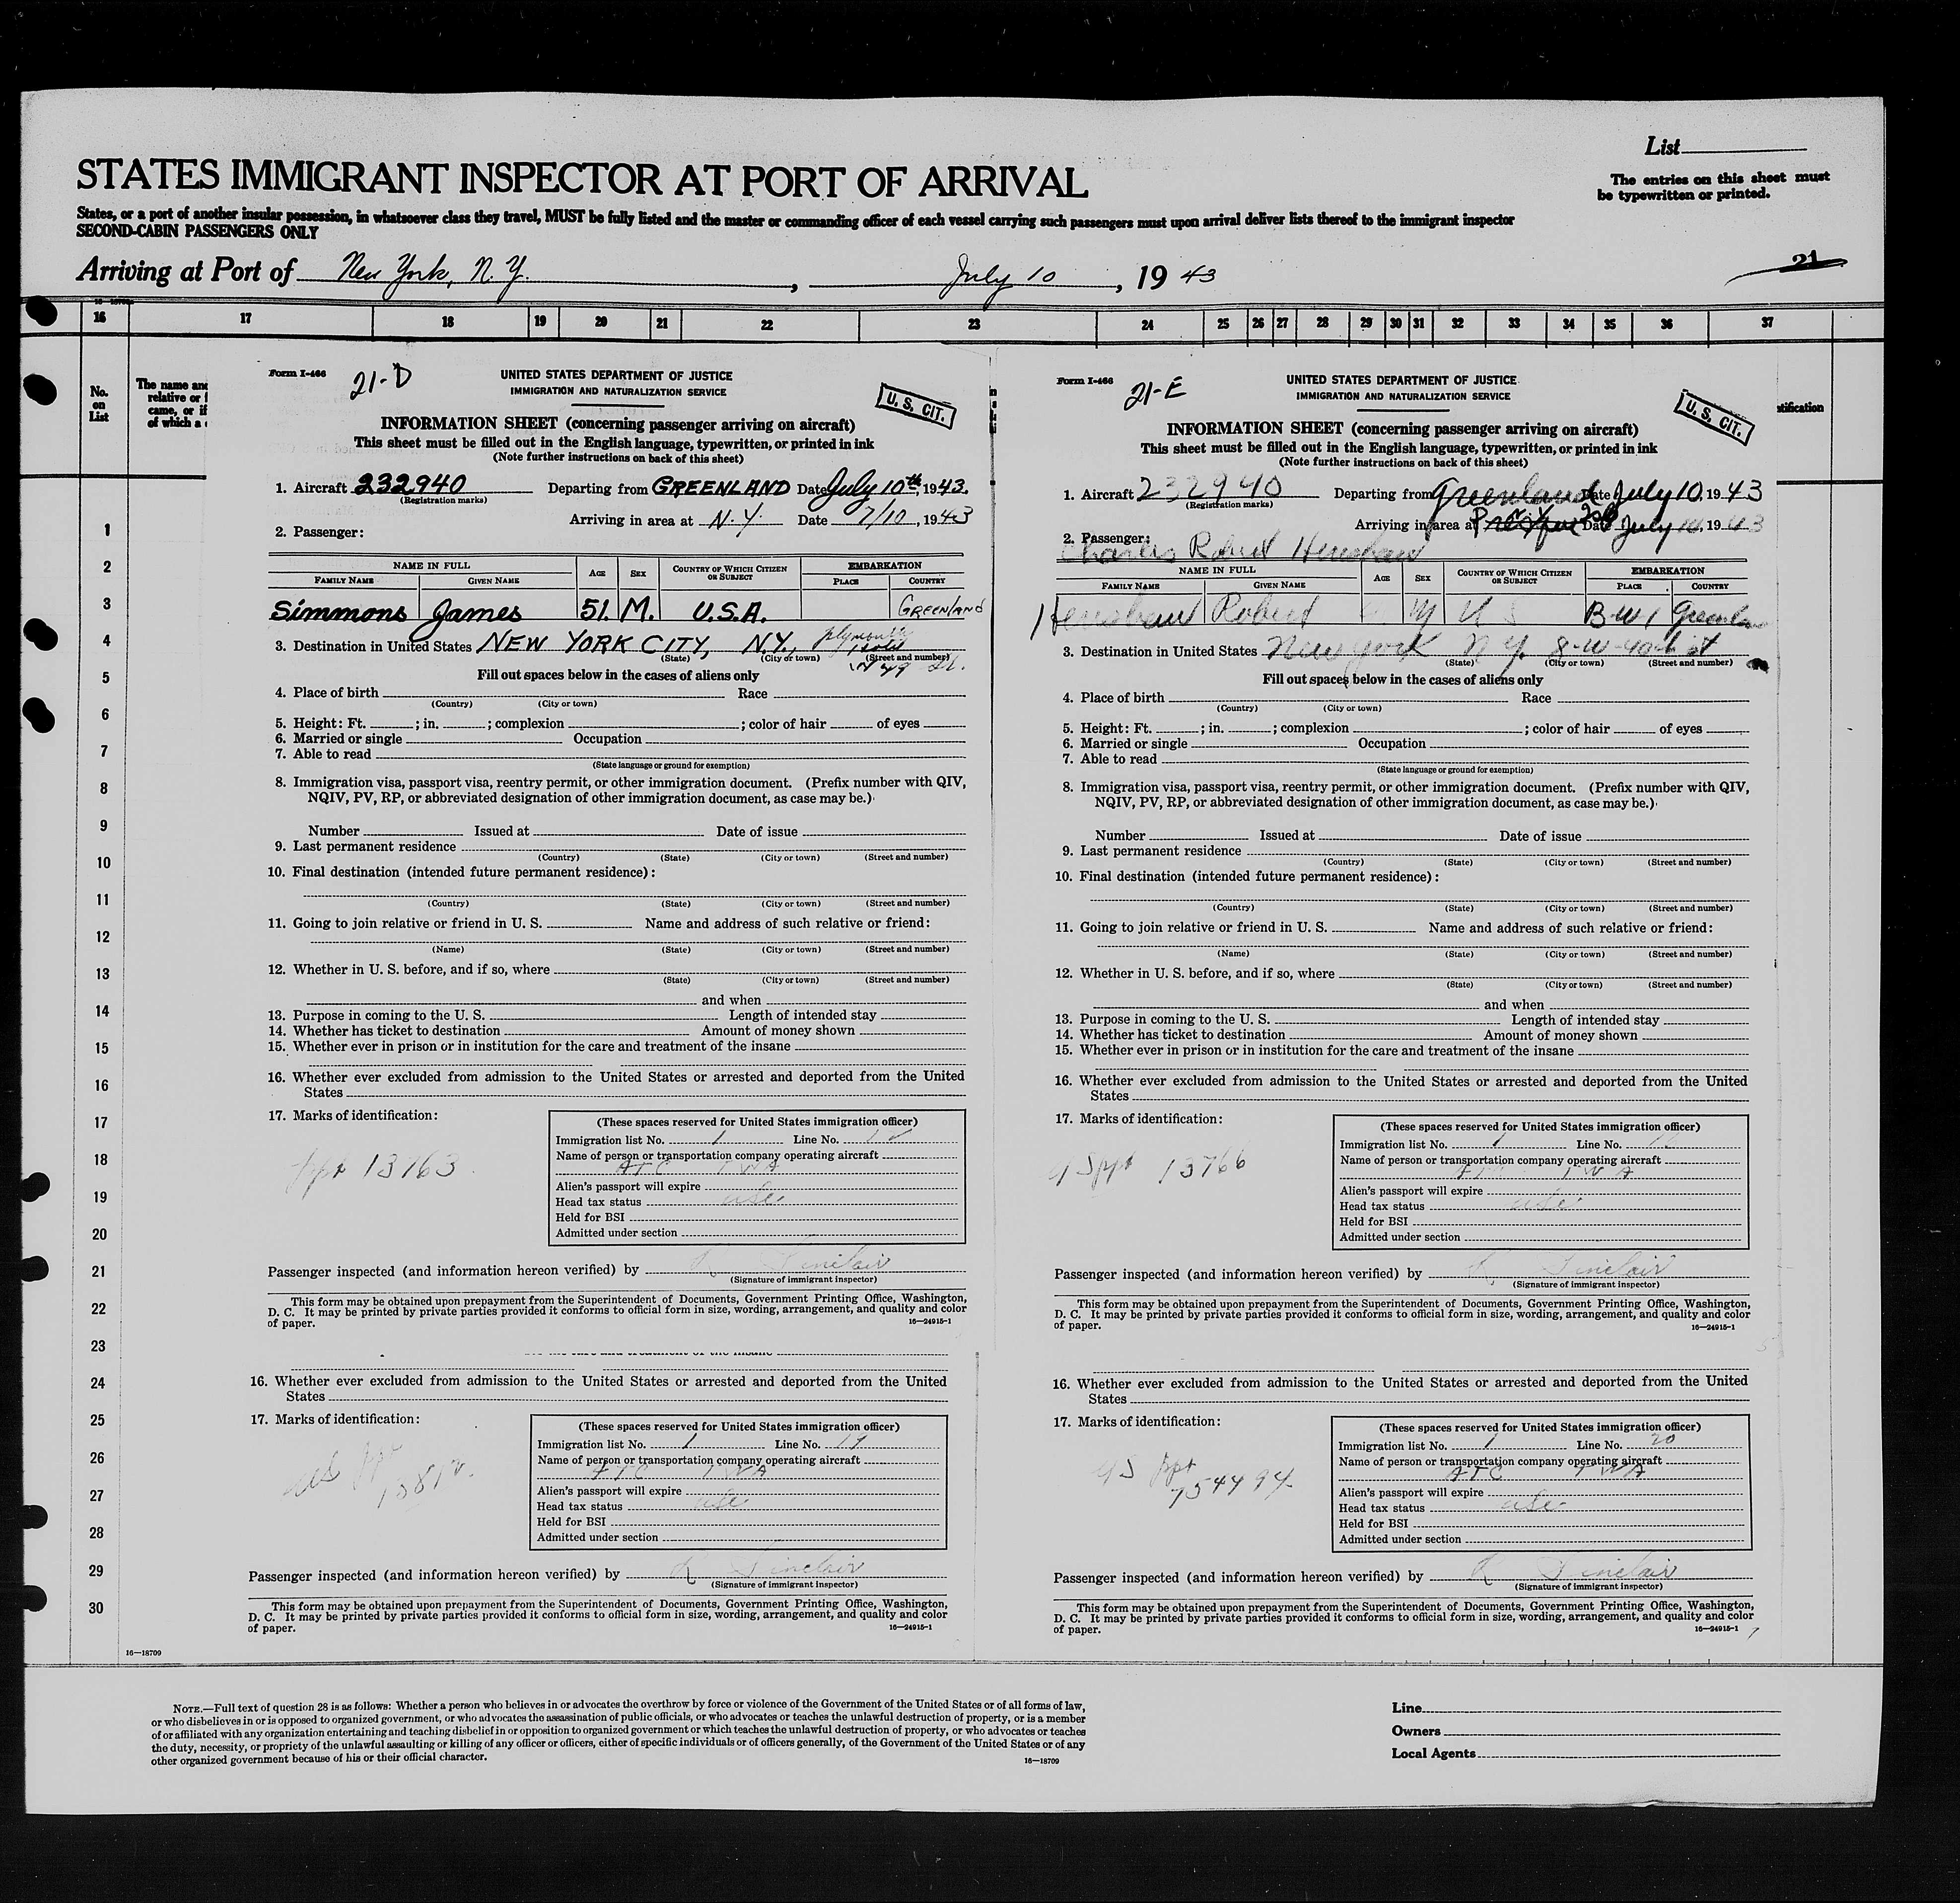 List
STATES IMMIGRANT INSPECTOR AT PORT OF ARRIVAL
The entries on this sheet must
be typewritten or printed.
States, or a port of another insular possession, in whatsoever class they travel, MUST be fully listed and the master or commanding officer of each vessel carrying such passengers must upon arrival deliver lists thereof to the immigrant inspector
SECOND-CABIN PASSENGERS ONLY
Arriving at Port of New York, N. Y., July 10, 1943
21
16 17 18 19 20 21 22 23 24 25 26 27 28 29 30 31 32 33 34 35 36 37
No.
on
List
The name and
relative or f
came, or if
of which a
tification
1
2
3
4
5
6
7
8
9
10
11
12
13
14
15
16
17
18
19
20
21
22
23
24
25
26
27
28
29
30
16—18709
Form I-466
21-D
UNITED STATES DEPARTMENT OF JUSTICE
IMMIGRATION AND NATURALIZATION SERVICE
U. S. CIT.
INFORMATION SHEET (concerning passenger arriving on aircraft)
This sheet must be filled out in the English language, typewritten, or printed in ink
(Note further instructions on back of this sheet)
1. Aircraft 232940 Departing from GREENLAND Date July 10th, 1943.
(Registration marks)
Arriving in area at N.Y. Date 7/10, 1943
2. Passenger:
NAME IN FULL AGE SEX COUNTRY OF WHICH CITIZEN OR SUBJECT EMBARKATION
FAMILY NAME GIVEN NAME PLACE COUNTRY
Simmons James 51. M. U.S.A. GREENLAND
3. Destination in United States NEW YORK CITY, N.Y., plymouth
(State) (City or town) (Street and number)
W 49 St.
Fill out spaces below in the cases of aliens only
4. Place of birth Race
(Country) (City or town)
5. Height: Ft. ; in. ; complexion ; color of hair of eyes
6. Married or single Occupation
7. Able to read
(State language or ground for exemption)
8. Immigration visa, passport visa, reentry permit, or other immigration document. (Prefix number with QIV,
NQIV, PV, RP, or abbreviated designation of other immigration document, as case may be.)
Number Issued at Date of issue
9. Last permanent residence
(Country) (State) (City or town) (Street and number)
10. Final destination (intended future permanent residence):
(Country) (State) (City or town) (Street and number)
11. Going to join relative or friend in U. S. Name and address of such relative or friend:
(Name) (State) (City or town) (Street and number)
12. Whether in U. S. before, and if so, where
(State) (City or town) (Street and number)
and when
13. Purpose in coming to the U. S. Length of intended stay
14. Whether has ticket to destination Amount of money shown
15. Whether ever in prison or in institution for the care and treatment of the insane
16. Whether ever excluded from admission to the United States or arrested and deported from the United
States
17. Marks of identification:
ppt 13763
(These spaces reserved for United States immigration officer)
Immigration list No. 1 Line No.
Name of person or transportation company operating aircraft
ATC TWA
Alien's passport will expire
Head tax status usc
Held for BSI
Admitted under section
Passenger inspected (and information hereon verified) by R Sinclair
(Signature of immigrant inspector)
This form may be obtained upon prepayment from the Superintendent of Documents, Government Printing Office, Washington,
D. C. It may be printed by private parties provided it conforms to official form in size, wording, arrangement, and quality and color
of paper. 16—24915-1
Form I-466
21-E
UNITED STATES DEPARTMENT OF JUSTICE
IMMIGRATION AND NATURALIZATION SERVICE
U. S. CIT.
INFORMATION SHEET (concerning passenger arriving on aircraft)
This sheet must be filled out in the English language, typewritten, or printed in ink
(Note further instructions on back of this sheet)
1. Aircraft 232940 Departing from Greenland Date July 10, 1943
(Registration marks)
Arriving in area at Date July 10, 1943
2. Passenger:
Charles Robert Henshaw
NAME IN FULL AGE SEX COUNTRY OF WHICH CITIZEN OR SUBJECT EMBARKATION
FAMILY NAME GIVEN NAME PLACE COUNTRY
Henshaw Robert M U S B-W1 Greenlan
3. Destination in United States New York N Y. 8-W-40th St
(State) (City or town) (Street and number)
Fill out spaces below in the cases of aliens only
4. Place of birth Race
(Country) (City or town)
5. Height: Ft. ; in. ; complexion ; color of hair of eyes
6. Married or single Occupation
7. Able to read
(State language or ground for exemption)
8. Immigration visa, passport visa, reentry permit, or other immigration document. (Prefix number with QIV,
NQIV, PV, RP, or abbreviated designation of other immigration document, as case may be.)
Number Issued at Date of issue
9. Last permanent residence
(Country) (State) (City or town) (Street and number)
10. Final destination (intended future permanent residence):
(Country) (State) (City or town) (Street and number)
11. Going to join relative or friend in U. S. Name and address of such relative or friend:
(Name) (State) (City or town) (Street and number)
12. Whether in U. S. before, and if so, where
(State) (City or town) (Street and number)
and when
13. Purpose in coming to the U. S. Length of intended stay
14. Whether has ticket to destination Amount of money shown
15. Whether ever in prison or in institution for the care and treatment of the insane
16. Whether ever excluded from admission to the United States or arrested and deported from the United
States
17. Marks of identification:
US ppt 13766
(These spaces reserved for United States immigration officer)
Immigration list No. 1 Line No.
Name of person or transportation company operating aircraft
ATC TWA
Alien's passport will expire
Head tax status usc
Held for BSI
Admitted under section
Passenger inspected (and information hereon verified) by R Sinclair
(Signature of immigrant inspector)
This form may be obtained upon prepayment from the Superintendent of Documents, Government Printing Office, Washington,
D. C. It may be printed by private parties provided it conforms to official form in size, wording, arrangement, and quality and color
of paper. 16—24915-1
16. Whether ever excluded from admission to the United States or arrested and deported from the United
States
17. Marks of identification:
US ppt
1381
(These spaces reserved for United States immigration officer)
Immigration list No. 1 Line No. 19
Name of person or transportation company operating aircraft
ATC TWA
Alien's passport will expire
Head tax status usc
Held for BSI
Admitted under section
Passenger inspected (and information hereon verified) by R Sinclair
(Signature of immigrant inspector)
This form may be obtained upon prepayment from the Superintendent of Documents, Government Printing Office, Washington,
D. C. It may be printed by private parties provided it conforms to official form in size, wording, arrangement, and quality and color
of paper. 16—24915-1
16. Whether ever excluded from admission to the United States or arrested and deported from the United
States
17. Marks of identification:
US ppt
754494
(These spaces reserved for United States immigration officer)
Immigration list No. 1 Line No. 20
Name of person or transportation company operating aircraft
ATC TWA
Alien's passport will expire
Head tax status usc
Held for BSI
Admitted under section
Passenger inspected (and information hereon verified) by R Sinclair
(Signature of immigrant inspector)
This form may be obtained upon prepayment from the Superintendent of Documents, Government Printing Office, Washington,
D. C. It may be printed by private parties provided it conforms to official form in size, wording, arrangement, and quality and color
of paper. 16—24915-1
NOTE.—Full text of question 28 is as follows: Whether a person who believes in or advocates the overthrow by force or violence of the Government of the United States or of all forms of law,
or who disbelieves in or is opposed to organized government, or who advocates the assassination of public officials, or who advocates or teaches the unlawful destruction of property, or is a member
of or affiliated with any organization entertaining and teaching disbelief in or opposition to organized government or which teaches the unlawful destruction of property, or who advocates or teaches
the duty, necessity, or propriety of the unlawful assaulting or killing of any officer or officers, either of specific individuals or of officers generally, of the Government of the United States or of any
other organized government because of his or their official character. 16—18709
Line
Owners
Local Agents